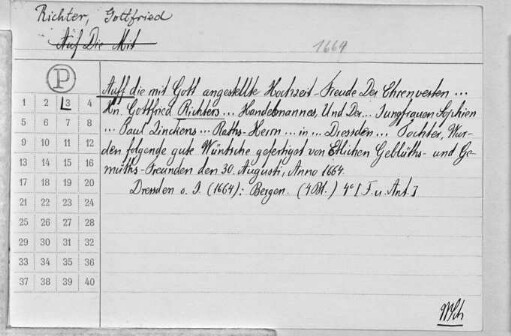 Richter, Gottfried
Auf Die Mit
1664
P
Auff die mit Gott angestellte Hochzeit-Freude Des Ehrenvesten ...
Hn. Gottfried Richters ... Handelsmannes, Und Der ... Jungfrauen Sophien
... Paul Zinckens ... Raths-Herrn ... in ... Dresden ... Tochter, Wur-
den folgende gute Wüntsche gefertiget von Etlichen Geblüths- und Ge-
müths-Freunden den 30. Augusti, Anno 1664.
Dresden o. J. (1664): Bergen. (4 Bl.) 4° [T. u. Ant.]
1 2 3 4
5 6 7 8
9 10 11 12
13 14 15 16
17 18 19 20
21 22 23 24
25 26 27 28
29 30 31 32
33 34 35 36
37 38 39 40